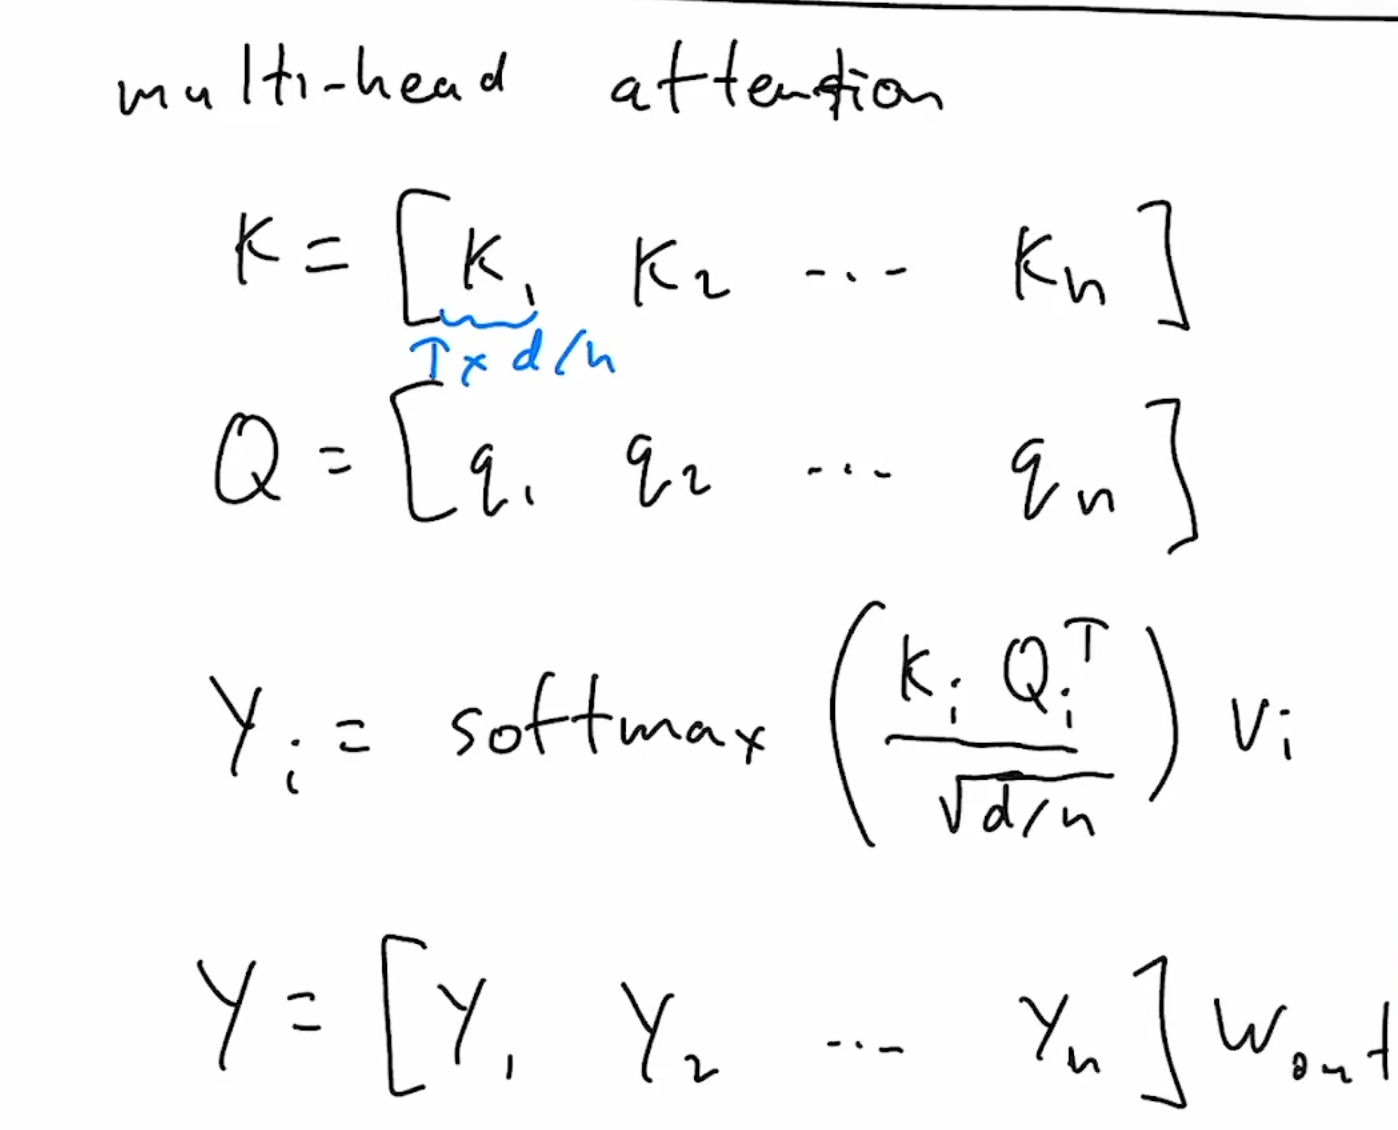 multi-head attention
K = [ K₁ K₂ ... Kₙ ]
T × d/n
Q = [ q₁ q₂ ... qₙ ]
Yᵢ = softmax ( Kᵢ Qᵢᵀ / √d/n ) Vᵢ
Y = [ Y₁ Y₂ ... Yₙ ] Wout